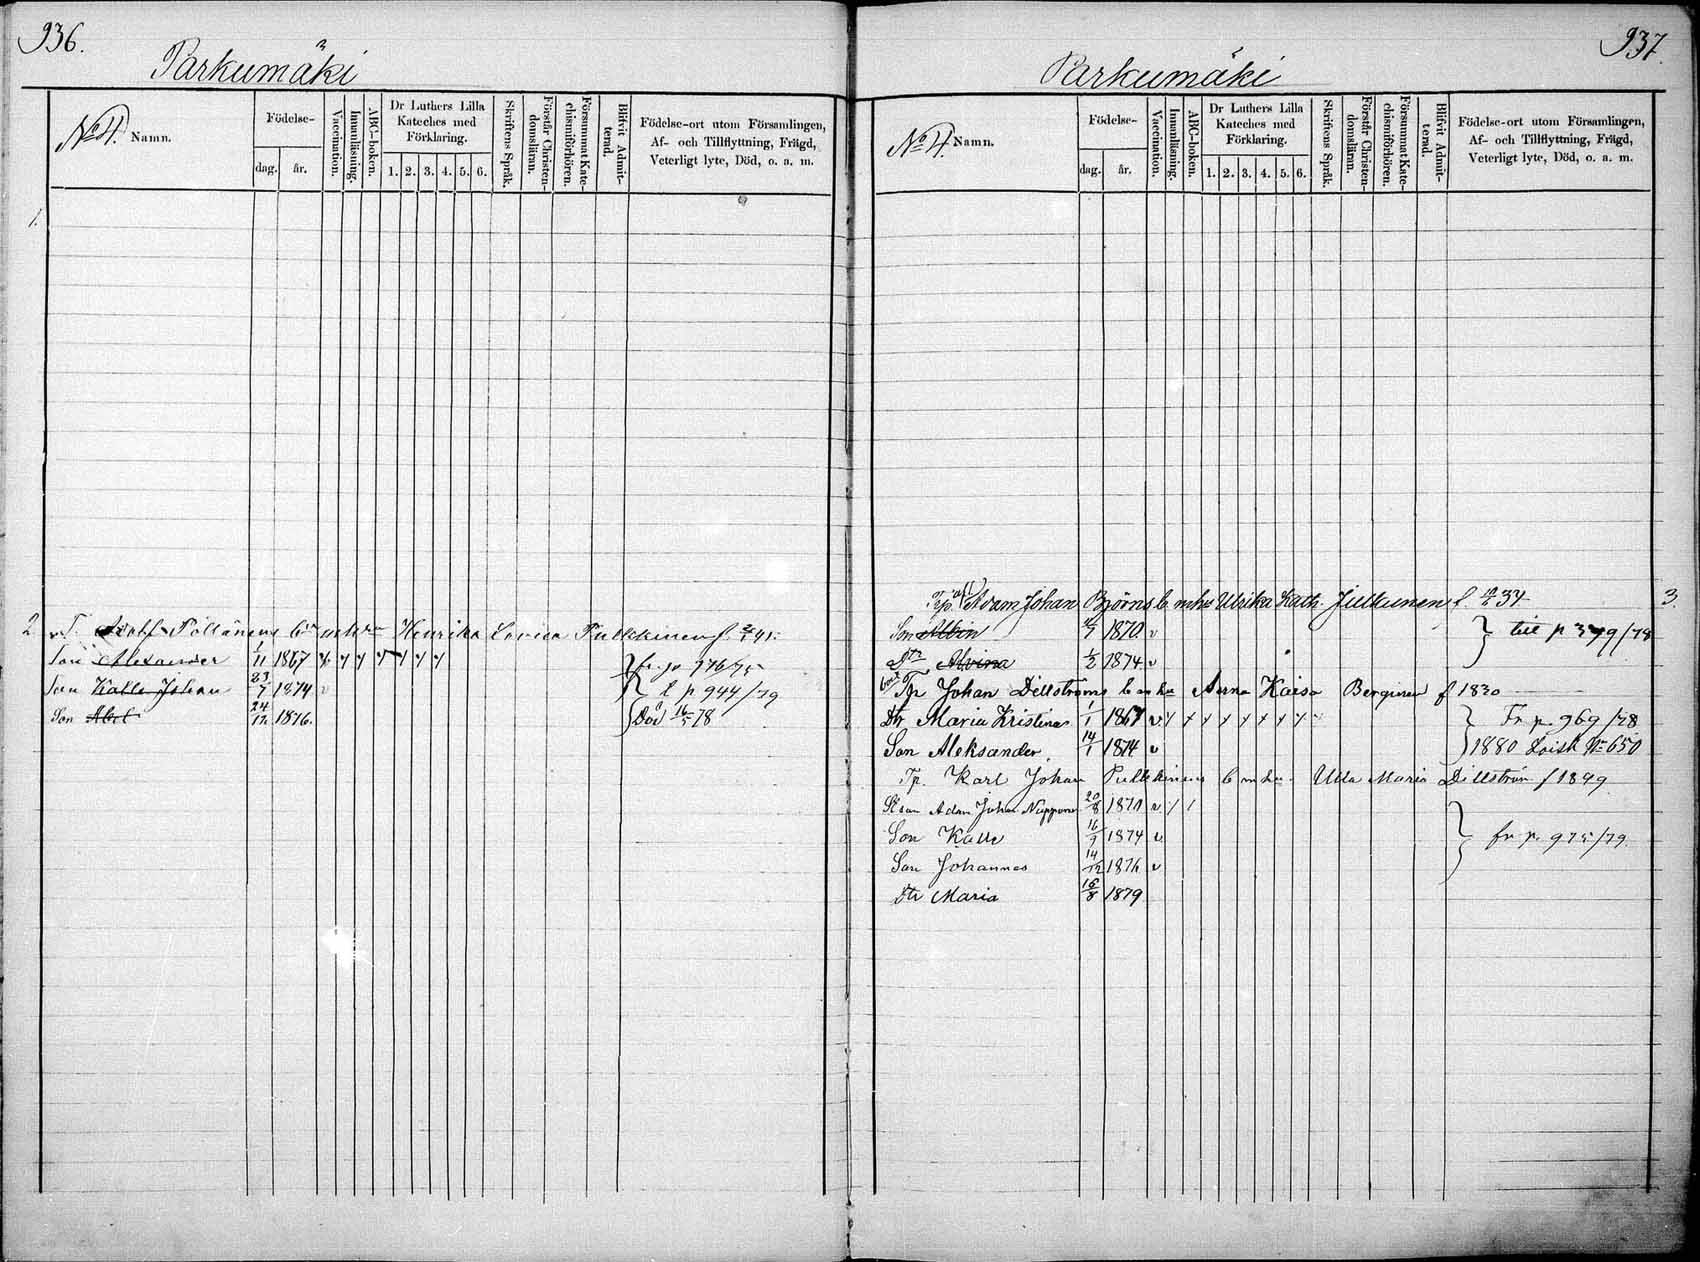 936.
Parkumäki
No 4. Namn.
Födelse-
dag. år.
Vaccination.
Innanläsning.
ABC-boken.
Dr Luthers Lilla
Kateches med
Förklaring.
1. 2. 3. 4. 5. 6.
Skriftens Språk.
Förstår Christen-
domsläran.
Försummat Kate-
chismiförhören.
Blifvit Admit-
terad.
Födelse-ort utom Församlingen,
Af- och Tillflyttning, Frägd,
Veterligt lyte, Död, o. a. m.
1.
2 Adolf Pöllänens bn m hu Henrika Lovisa Pulkkinen f.
Son Alexander 1/11 1867
fr. p 976/75
Son Kalle Johan 23/7 1874
t p 944/79
Son Abel 24/12 1876.
Död 16/5 78
937.
Parkumäki
No 4. Namn.
Födelse-
dag. år.
Vaccination.
Innanläsning.
ABC-boken.
Dr Luthers Lilla
Kateches med
Förklaring.
1. 2. 3. 4. 5. 6.
Skriftens Språk.
Förstår Christen-
domsläran.
Försummat Kate-
chismiförhören.
Blifvit Admit-
terad.
Födelse-ort utom Församlingen,
Af- och Tillflyttning, Frägd,
Veterligt lyte, Död, o. a. m.
Adam Johan Björns b m hu Ulrika Kath. Julkunen f. 34 3.
Son Albin 1870 v
till p 379/78
Dtr Alvina 1/2 1874 v
Tp Johan Dillströms b m hu Anna Kaisa Berginen f 1830
Dtr Maria Kristina 1/1 1867 v
Fr p. 969/78
Son Aleksander 14/1 1874 v
1880 Loisk No 650
Tp. Karl Johan Pulkkinens b m hu Ulla Maria Dillström f 1849
Stson Adam Johan Nupponen 20/8 1870 v
Son Kalle 16/9 1874 v
fr p. 975/79.
Son Johannes 14/12 1876 v
Dtr Maria 16/8 1879